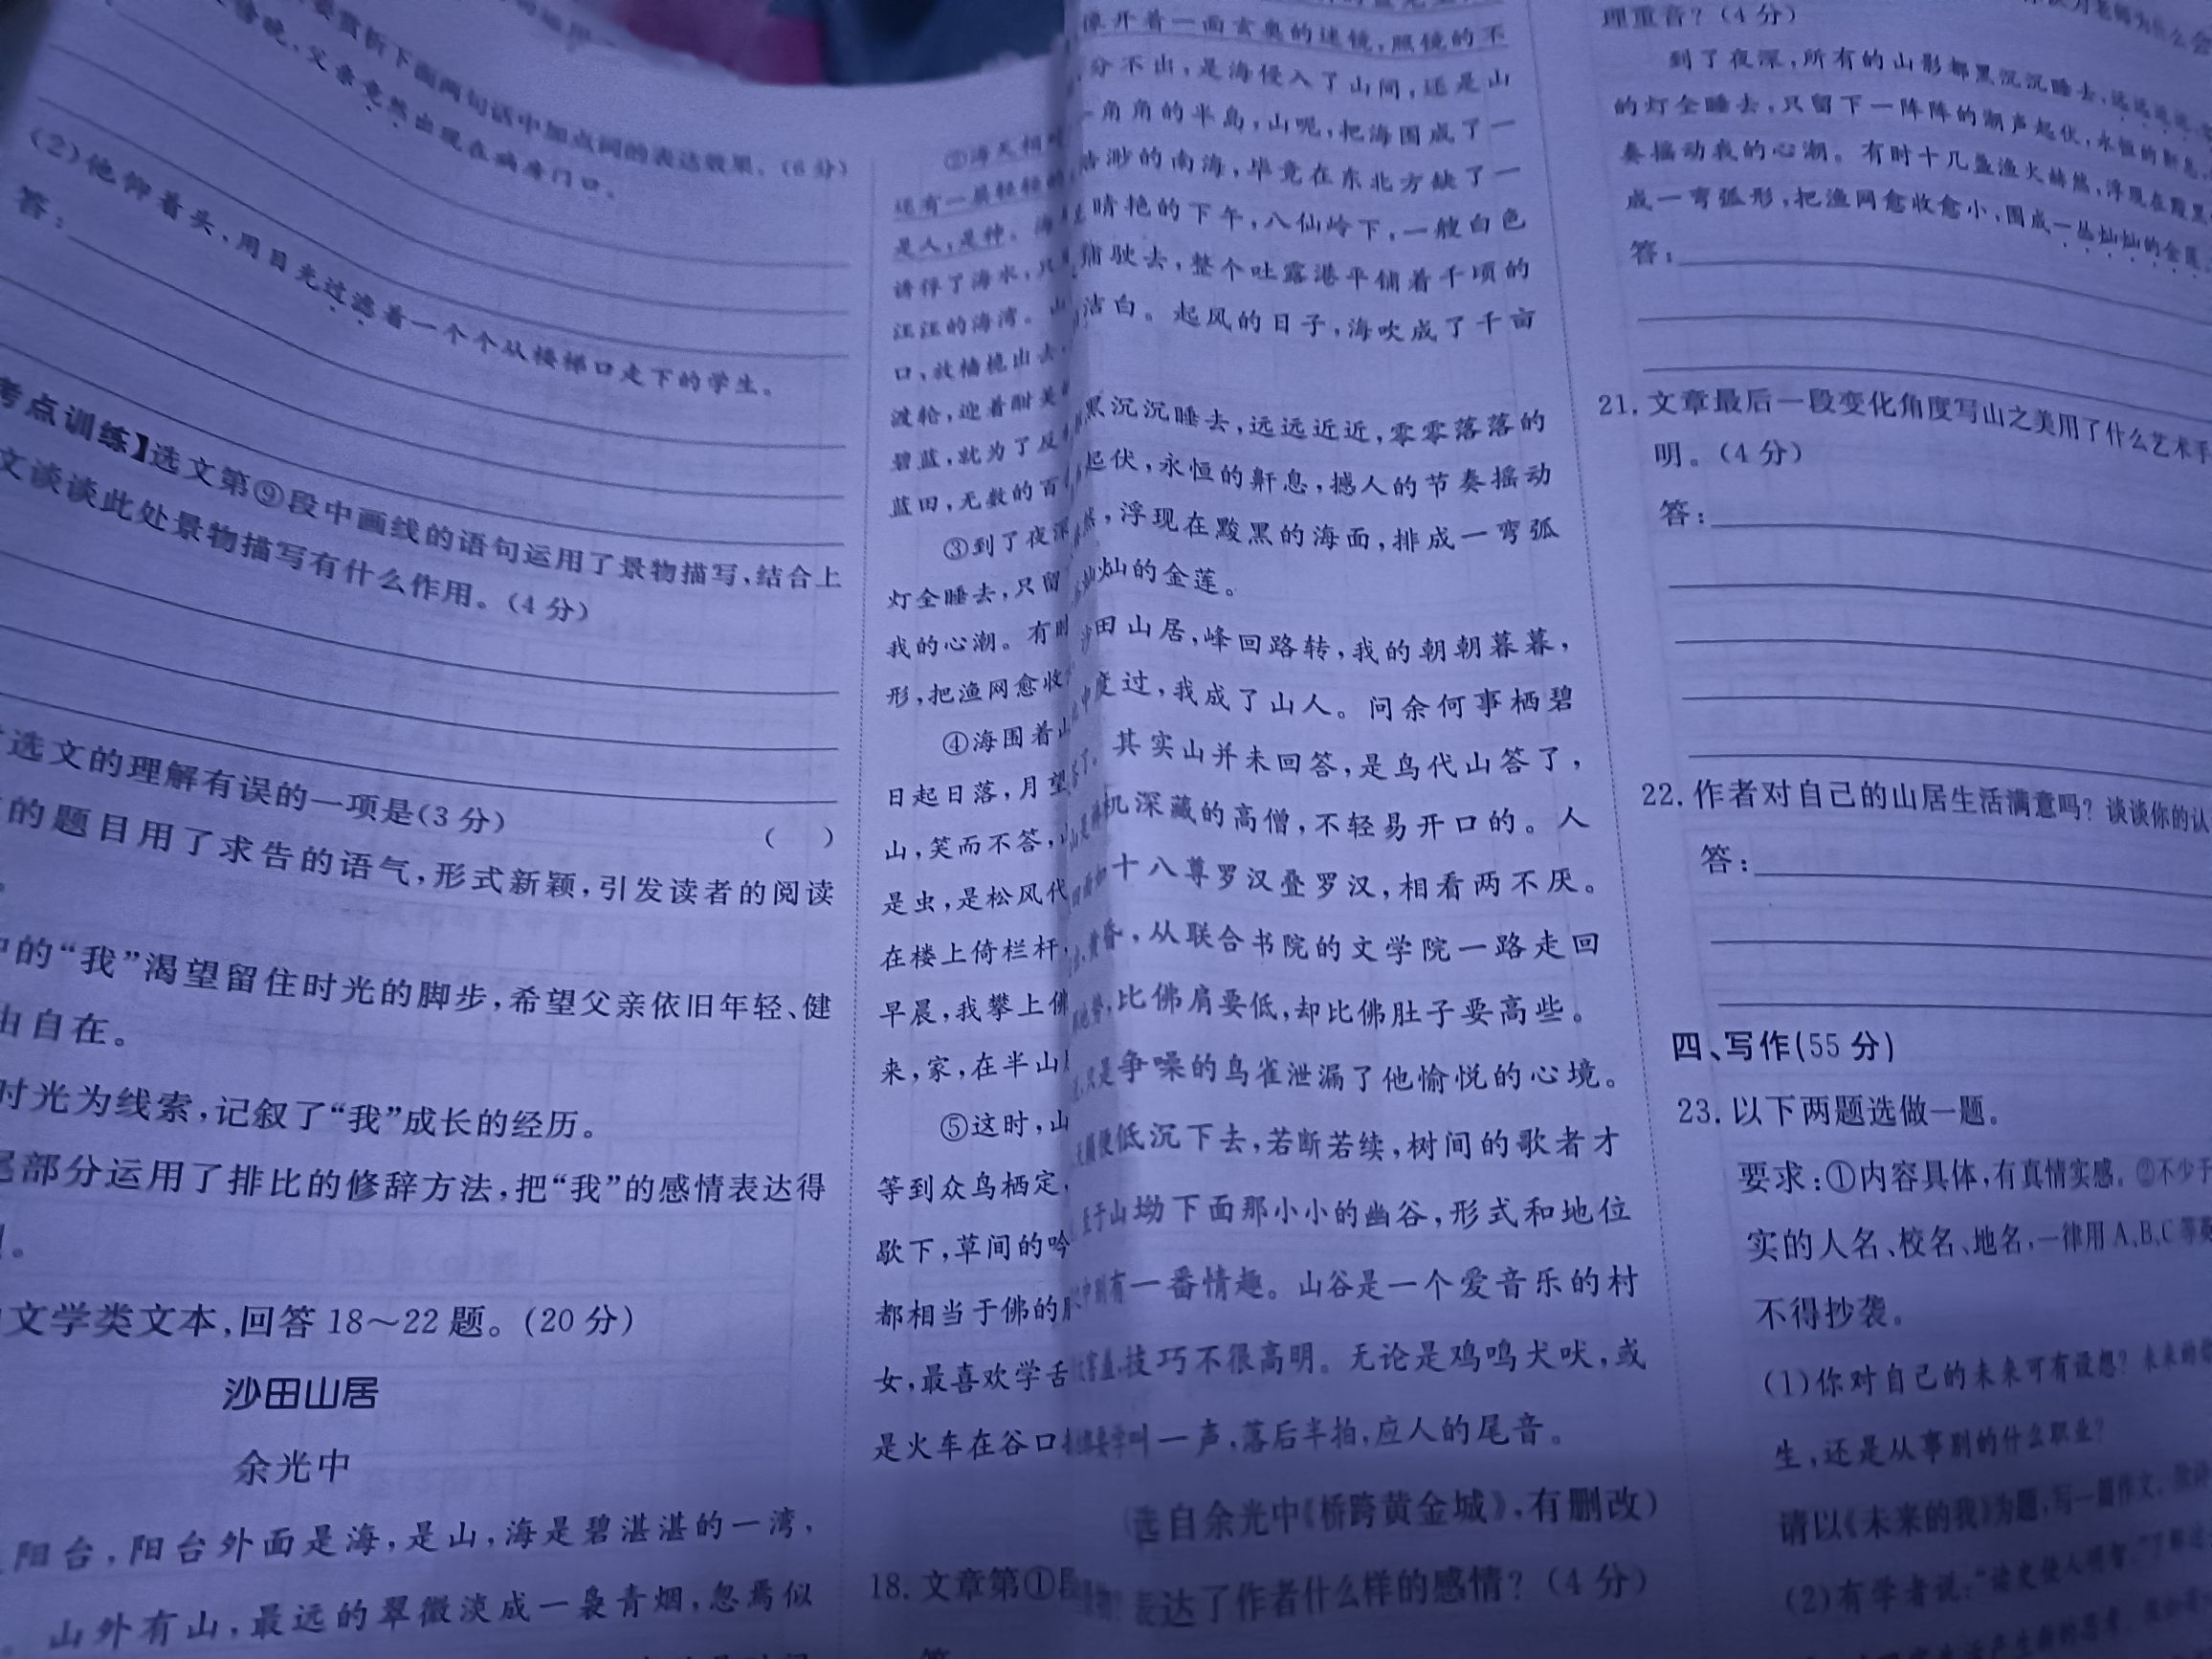 赏析下面两句话中加点词的表达效果。(6分)
父亲竟然出现在病房门口。
(2)他仰着头,用目光过滤着一个个从楼梯口走下的学生。
答:
考点训练】选文第⑨段中画线的语句运用了景物描写,结合上
文谈谈此处景物描写有什么作用。(4分)
选文的理解有误的一项是(3分)
( )
的题目用了求告的语气,形式新颖,引发读者的阅读
的“我”渴望留住时光的脚步,希望父亲依旧年轻、健
由自在。
时光为线索,记叙了“我”成长的经历。
尾部分运用了排比的修辞方法,把“我”的感情表达得
文学类文本,回答18～22题。(20分)
沙田山居
余光中
阳台,阳台外面是海,是山,海是碧湛湛的一湾,
山外有山,最远的翠微淡成一袅青烟,忽焉似
②海天相
还有一层轻轻的
是人,是神。海
诱俘了海水,只
汪汪的海湾。山
口,放樯桅出去,
渡轮,迎着酣美
碧蓝,就为了反
蓝田,无数的百
③到了夜深
灯全睡去,只留
我的心潮。有时
形,把渔网愈收
④海围着山
日起日落,月望
山,笑而不答,
是虫,是松风代
在楼上倚栏杆,
早晨,我攀上佛
来,家,在半山
⑤这时,山
等到众鸟栖定,
歇下,草间的吟
都相当于佛的
女,最喜欢学舌
是火车在谷口
18. 文章第①段
开着一面玄奥的迷镜,照镜的不
分不出,是海侵入了山间,还是山
一角角的半岛,山呢,把海围成了一
浩渺的南海,毕竟在东北方缺了一
晴艳的下午,八仙岭下,一艘白色
驶去,整个吐露港平铺着千顷的
洁白。起风的日子,海吹成了千亩
黑沉沉睡去,远远近近,零零落落的
起伏,永恒的鼾息,撼人的节奏摇动
,浮现在黢黑的海面,排成一弯弧
灿的金莲。
沙田山居,峰回路转,我的朝朝暮暮,
中度过,我成了山人。问余何事栖碧
答了。其实山并未回答,是鸟代山答了,
机深藏的高僧,不轻易开口的。人
十八尊罗汉叠罗汉,相看两不厌。
黄昏,从联合书院的文学院一路走回
比佛肩要低,却比佛肚子要高些。
只是争噪的鸟雀泄漏了他愉悦的心境。
便低沉下去,若断若续,树间的歌者才
至于山坳下面那小小的幽谷,形式和地位
中别有一番情趣。山谷是一个爱音乐的村
技巧不很高明。无论是鸡鸣犬吠,或
要学叫一声,落后半拍,应人的尾音。
(选自余光中《桥跨黄金城》,有删改)
表达了作者什么样的感情?(4分)
理重音?(4分)
到了夜深,所有的山影都黑沉沉睡去,远远近近
的灯全睡去,只留下一阵阵的潮声起伏,永恒的鼾息,
奏摇动我的心潮。有时十几盏渔火赫然,浮现在黢黑
成一弯弧形,把渔网愈收愈小,围成一丛灿灿的金莲
答:
21. 文章最后一段变化角度写山之美用了什么艺术手
明。(4分)
答:
22. 作者对自己的山居生活满意吗?谈谈你的认
答:
四、写作(55分)
23. 以下两题选做一题。
要求:①内容具体,有真情实感。②不少于
实的人名、校名、地名,一律用A、B、C等
不得抄袭。
(1)你对自己的未来可有设想?未来的
生,还是从事别的什么职业?
请以《未来的我》为题,写一篇作文。
(2)有学者说:“读史使人明智。”了解